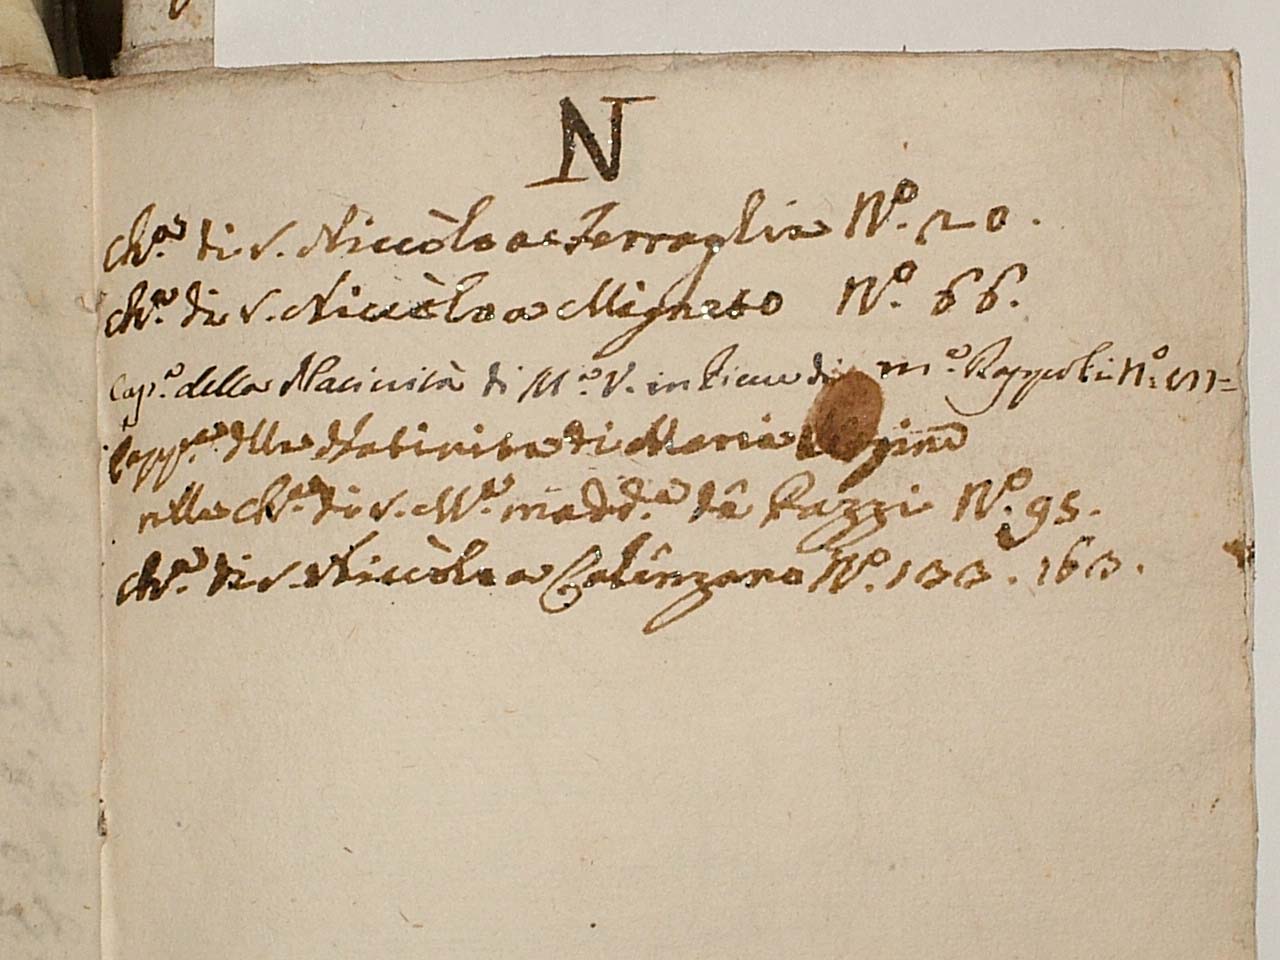 N
Ch.ª di S. Niccòlo a Ferraglia N.º 20.
Ch.ª di S. Niccòlo a Migneto N.º 66.
Cap.ª della Natività di M.ª V. in Pieve di m.ª Rappoli N.º
Capp.ª della Natività di Maria Vergine
nella Ch.ª di S. M.ª Madd.ª dè Pazzi N.º 95.
Ch.ª di S. Niccòlo a Calenzano N.º 133. 163.